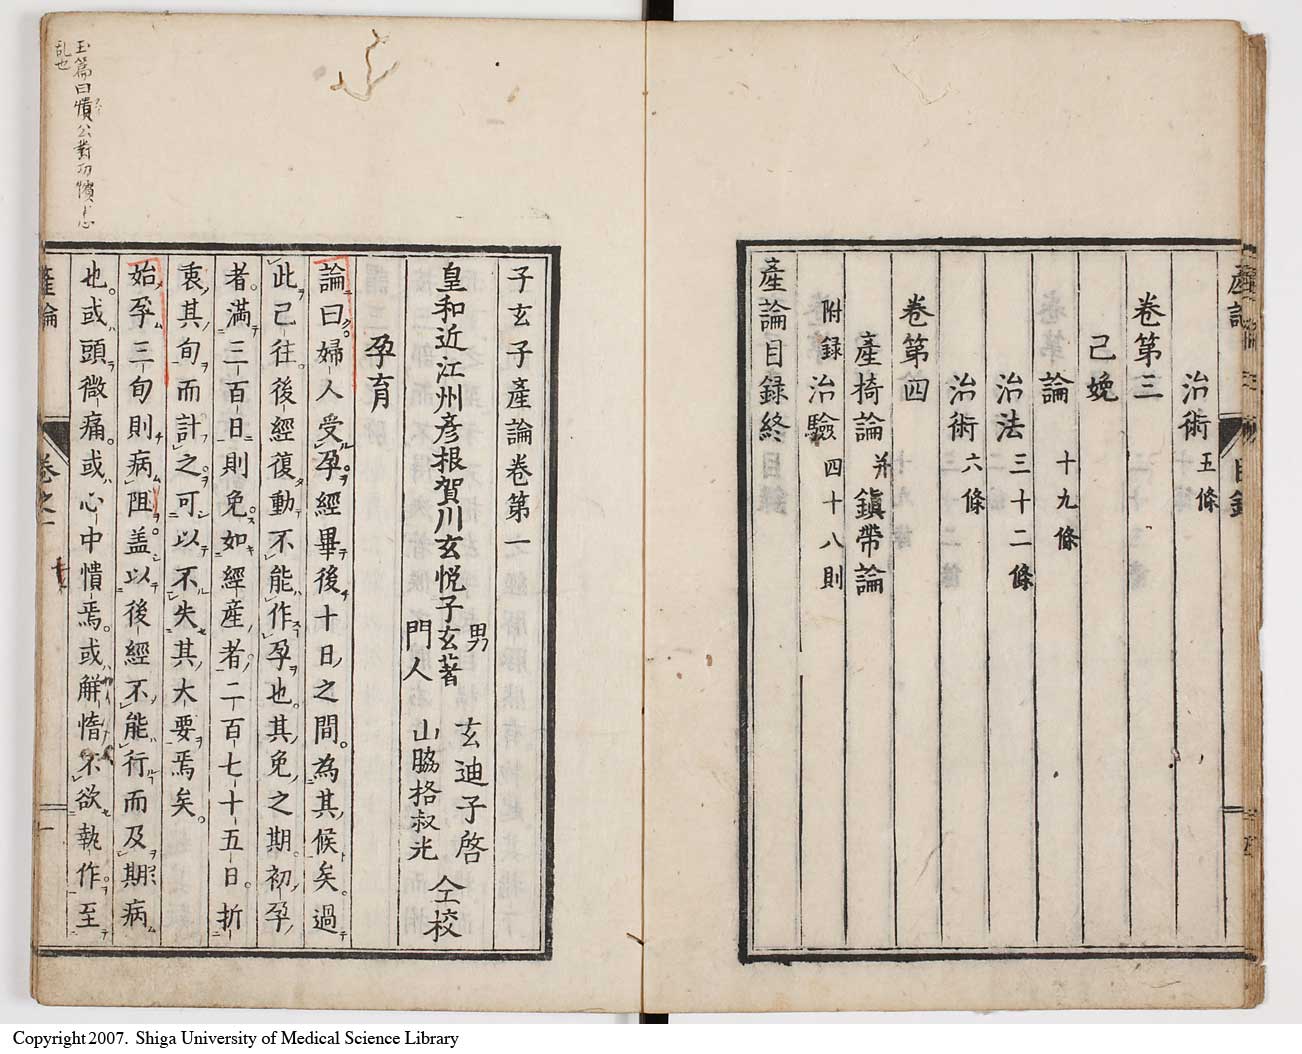 治術 五條
卷第三
己娩
論 十九條
治法 三十二條
治術 六條
卷第四
產椅論 并 鎮帶論
附録 治驗 四十八則
產論目録終
子玄子產論卷第一
皇和近江州彦根賀川玄悦子玄著
男 玄迪子啓
門人 山脇格叔光
仝校
孕育
論曰。婦人受孕。經畢後十日之間。為其候矣。過
此已往。後經復動。不能作孕也。其免之期。初孕
者。滿三百日則免。如經產者。二百七十五日。折
衷其旬而計之。可以不失其大要焉矣。
始孕三旬則病阻。盖以後經不能行而及期病
也。或頭微痛。或心中憒焉。或懈惰不欲執作。至
產論
卷之一
一
玉篇曰憒公對切憒心
乱也
Copyright 2007. Shiga University of Medical Science Library